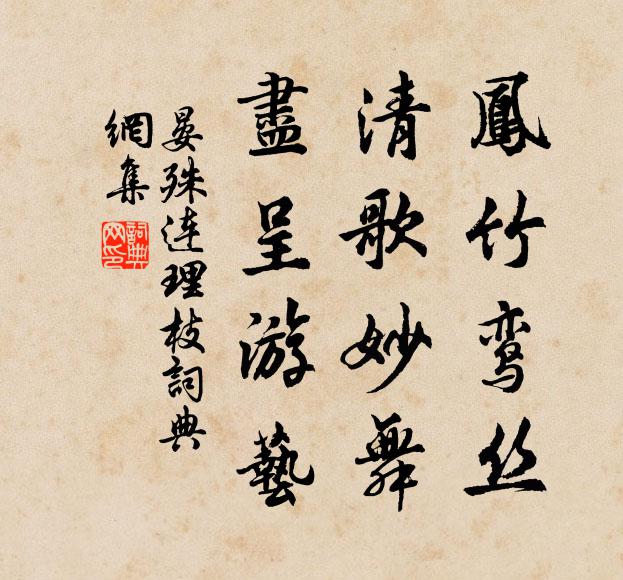 鳳竹鸾丝
清歌妙舞
盡呈游藝
晏殊连理枝詞典
網集
詞典网印